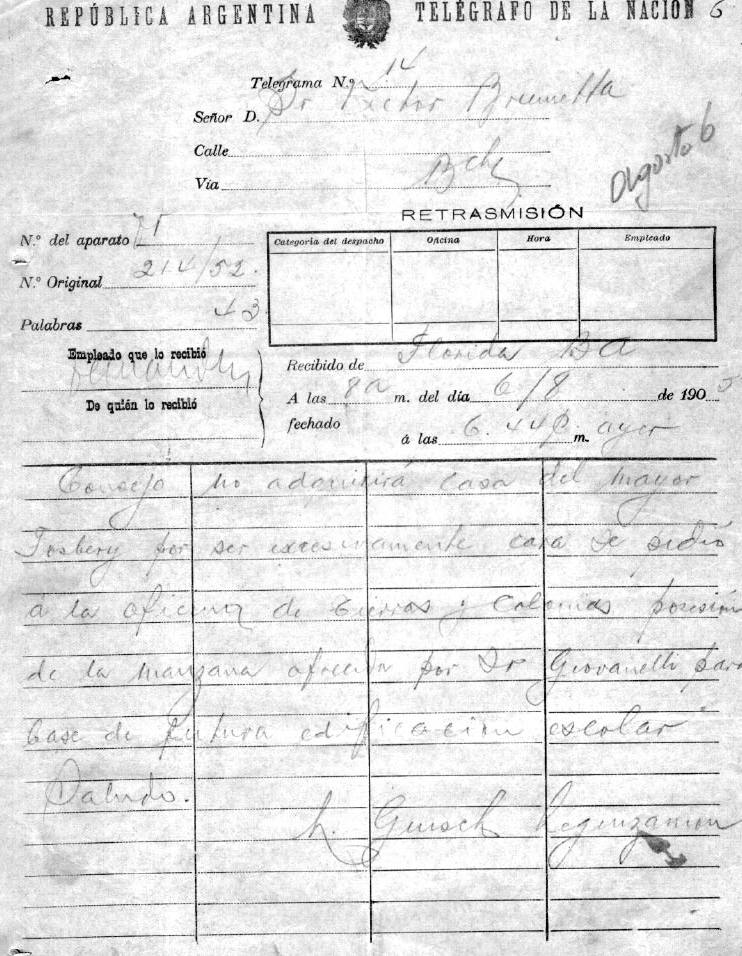 REPÚBLICA ARGENTINA TELÉGRAFO DE LA NACIÓN 6
Telegrama N.º 14
Señor D. Dr Victor Brunella
Calle
Vía
Agosto 6
RETRASMISIÓN
N.º del aparato
Categoria del despacho Oficina Hora Empleado
N.º Original 214/52.
Palabras 43
Empleado que lo recibió
De quién lo recibió
Recibido de Florida BA
A las 8a m. del día 6/8 de 1905
fechado á las 6.44 p m. ayer
Consejo no adquirirá casa del mayor
por ser excesivamente cara Se pidió
á la oficina de tierras y Colonias posesión
de la manzana ofrecida por Dr Giovanelli para
base de futura edificación escolar
Saludo.